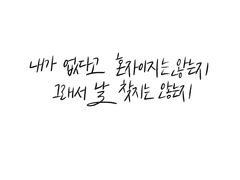 내가 없다고 혼자이지는 않는지
그래서 날 찾지는 않는지